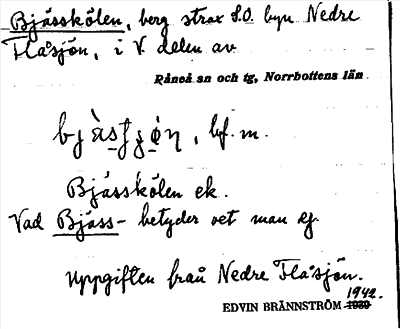 Bjässkölen, berg strax S.O. byn Nedre
Flåsjön, i V delen av
Råneå sn och tg, Norrbottens län
bf. m.
Bjässkölen ek.
Vad Bjäss- betyder vet man ej.
Uppgiften från Nedre Flåsjön.
1942.
EDVIN BRÄNNSTRÖM 1939